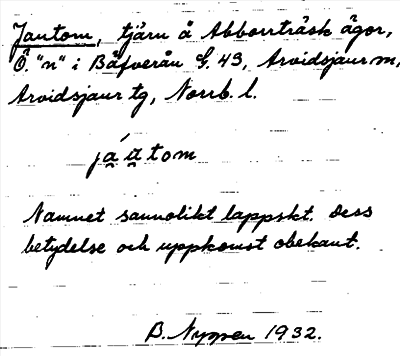 Jautom, tjärn å Abborrträsk ägor,
Ö. "n" i Bäfverån G. 43, Arvidsjaur m,
Arvidsjaur tg, Norrb. l.
já̱a̱tom
Namnet sannolikt lappskt. Dess
betydelse och uppkomst obekant.
B. Nyppen 1932.